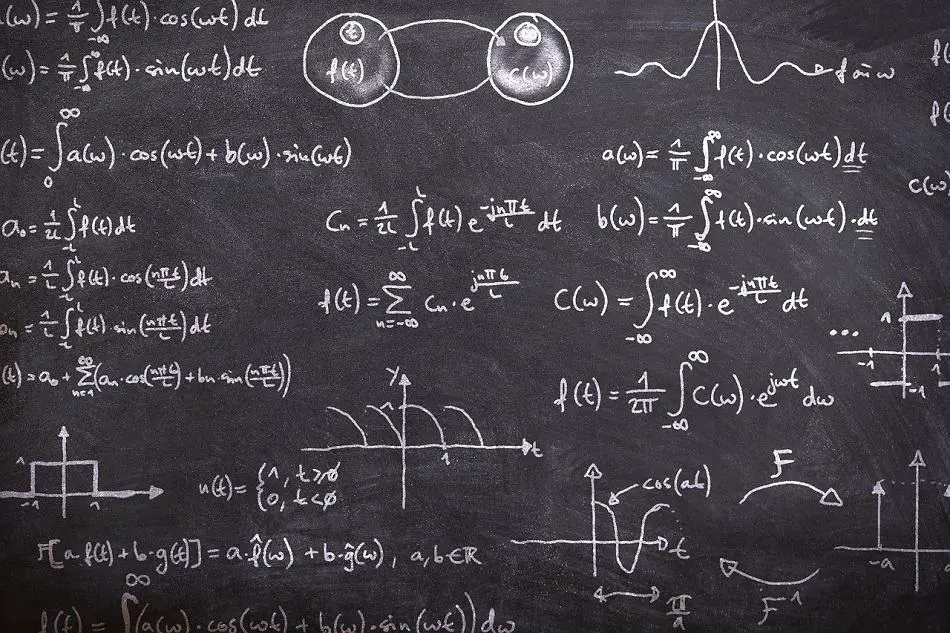 (ω) = 1/π ∫_{-∞}^{∞} f(t)·cos(ωt) dt
(ω) = 1/π ∫_{-∞}^{∞} f(t)·sin(ωt) dt
t
f(t)
C(ω)
ω
f(
f(
(t) = ∫_0^∞ a(ω)·cos(ωt) + b(ω)·sin(ωt)
a(ω) = 1/π ∫_{-∞}^{∞} f(t)·cos(ωt) dt
C(ω)
a₀ = 1/2L ∫_{-L}^{L} f(t) dt
Cn = 1/2L ∫_{-L}^{L} f(t) e^{-jnπt/L} dt
b(ω) = 1/π ∫_{-∞}^{∞} f(t)·sin(ωt)·dt
an = 1/L ∫_{-L}^{L} f(t)·cos(nπt/L) dt
f(t) = ∑_{n=-∞}^{∞} Cn·e^{jnπt/L}
C(ω) = ∫_{-∞}^{∞} f(t)·e^{-jnπt/L} dt
n = 1/L ∫_{-L}^{L} f(t)·sin(nπt/L) dt
...
1
-1
1
-1
(t) = a₀ + ∑_{n=1}^{∞} (an·cos(nπt/L) + bn·sin(nπt/L))
y
1
1
t
f(t) = 1/2π ∫_{-∞}^{∞} C(ω)·e^{jωt} dω
1
-1
1
u(t) = {1, t≥0
{0, t<0
cos(at)
t
π/a
F
F⁻¹
-a
F[a·f(t) + b·g(t)] = a·f̂(ω) + b·ĝ(ω), a,b∈ℝ
f(t) = ∫^∞ (a(ω)·cos(ωt) + b(ω)·sin(ωt)) dω